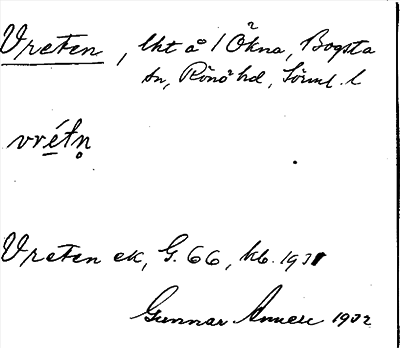 Vreten, lht å 1 Ökna, Bogsta
sn, Rönö hd, Sörml. l
vrétn̥
Vreten ek, G. 66, kb. 1931
Gunnar 1932